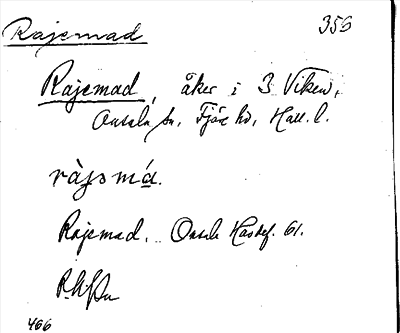 Rajemad 356
Rajemad, åker i 3 Viken,
Onsala sn, Fjäre hd, Hall. l.
ràjsmá.
Rajemad. Onsala Hasdef. 61.
466